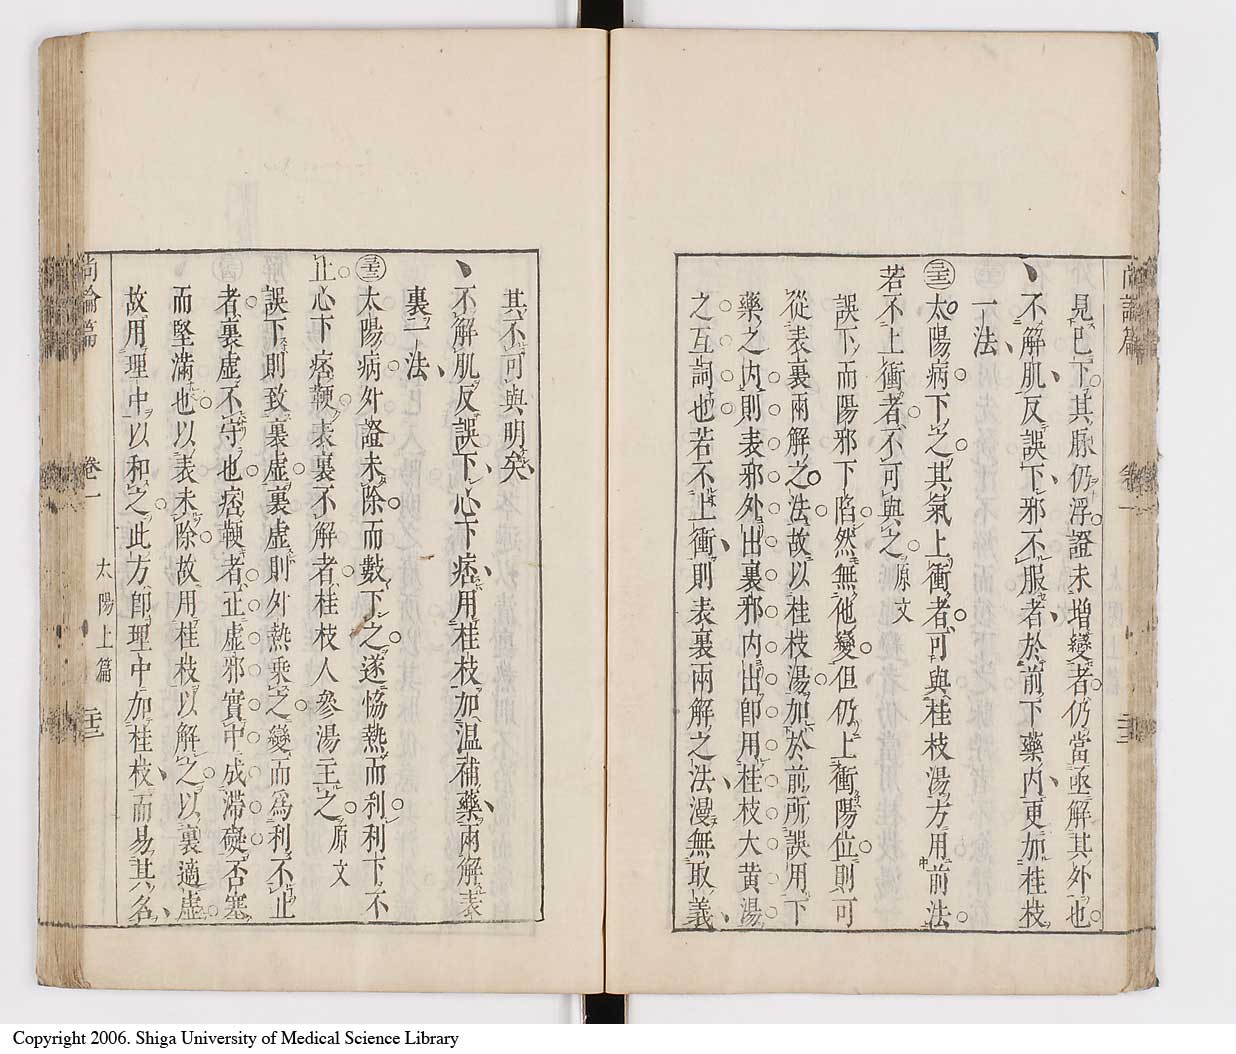 見已下其脉仍浮證未增變者仍當亟解其外也
不解肌反誤下邪不服者於前下藥内更加桂枝
一法
太陽病下之其氣上衝者可與桂枝湯方用前法
若不上衝者不可與之原文
誤下而陽邪下陷然無他變但仍上衝陽位則可
從表裏兩解之法故以桂枝湯加於前所誤用下
藥之内則表邪外出裏邪内出卽用桂枝大黃湯
之互詞也若不上衝則表裏兩解之法漫無取義
尚論篇
卷一
其不可與明矣
不解肌反誤下心下痞用桂枝加温補藥兩解表
裏一法
太陽病外證未除而數下之遂恊熱而利利下不
止心下痞鞕表裏不解者桂枝人參湯主之原文
誤下則致裏虛裏虛則外熱乘之變而爲利不止
者裏虛不守也痞鞕者正虛邪實中成滯礙否塞
而堅滿也以表未除故用桂枝以解之以裏適虛
故用理中以和之此方卽理中加桂枝而易其名
尚論篇
卷一
太陽上篇
二十三
Copyright 2006. Shiga University of Medical Science Library